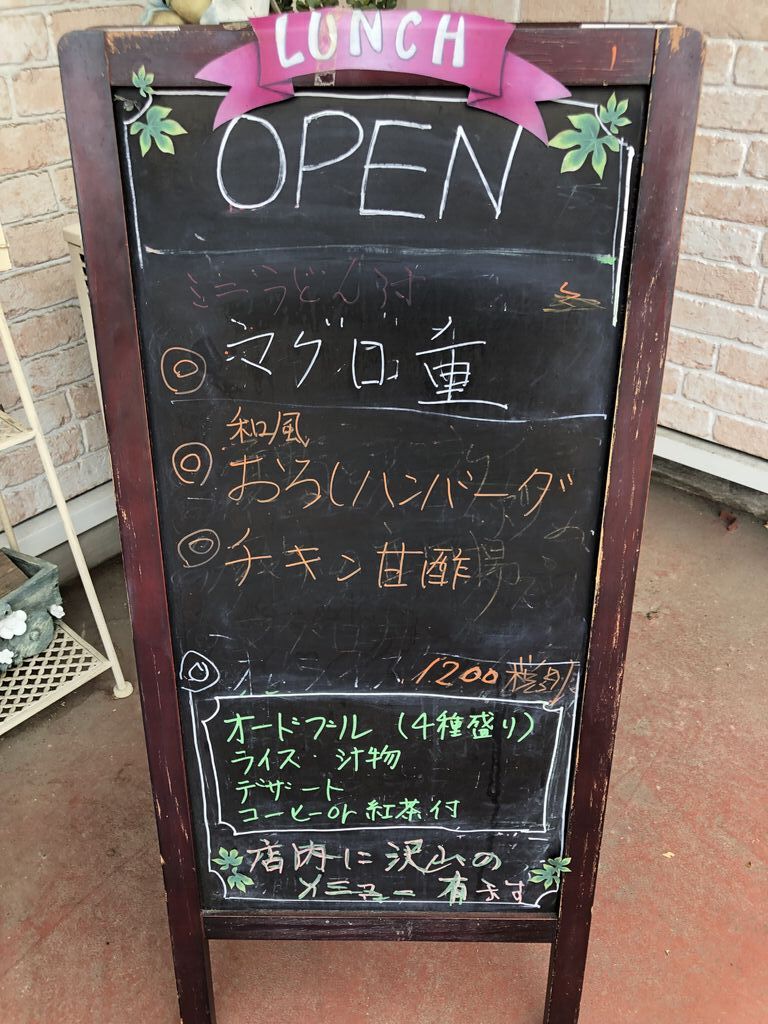 LUNCH
OPEN
ミニうどん付
◎ マグロ重
和風
◎ おろしハンバーグ
◎ チキン甘酢
◎
1200 税別
オードブル (4種盛り)
ライス・汁物
デザート
コーヒーor紅茶付
店内に沢山の
メニュー有ます